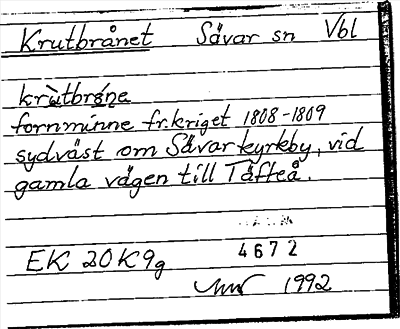 Krutbrånet Sävar sn Vbl
krùtbrǿne
fornminne fr. kriget 1808-1809
sydväst om Sävar kyrkby, vid
gamla vägen till Täfteå.
4672
EK 20K9g
1992